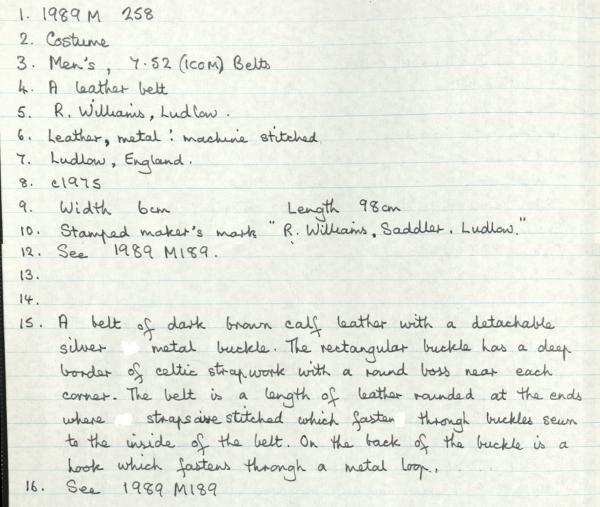 1. 1989 M 258
2. Costume
3. Men's, 7.52 (ICOM) Belts
4. A leather belt
5. R. Williams, Ludlow.
6. Leather, metal : machine stitched
7. Ludlow, England.
8. c1975
9. Width 6cm Length 98cm
10. Stamped maker's mark "R. Williams, Saddler. Ludlow."
12. See 1989 M189.
13.
14.
15. A belt of dark brown calf leather with a detachable
silver metal buckle. The rectangular buckle has a deep
border of celtic strapwork with a round boss near each
corner. The belt is a length of leather rounded at the ends
where straps are stitched which fasten through buckles sewn
to the inside of the belt. On the back of the buckle is a
hook which fastens through a metal loop.
16. See 1989 M189